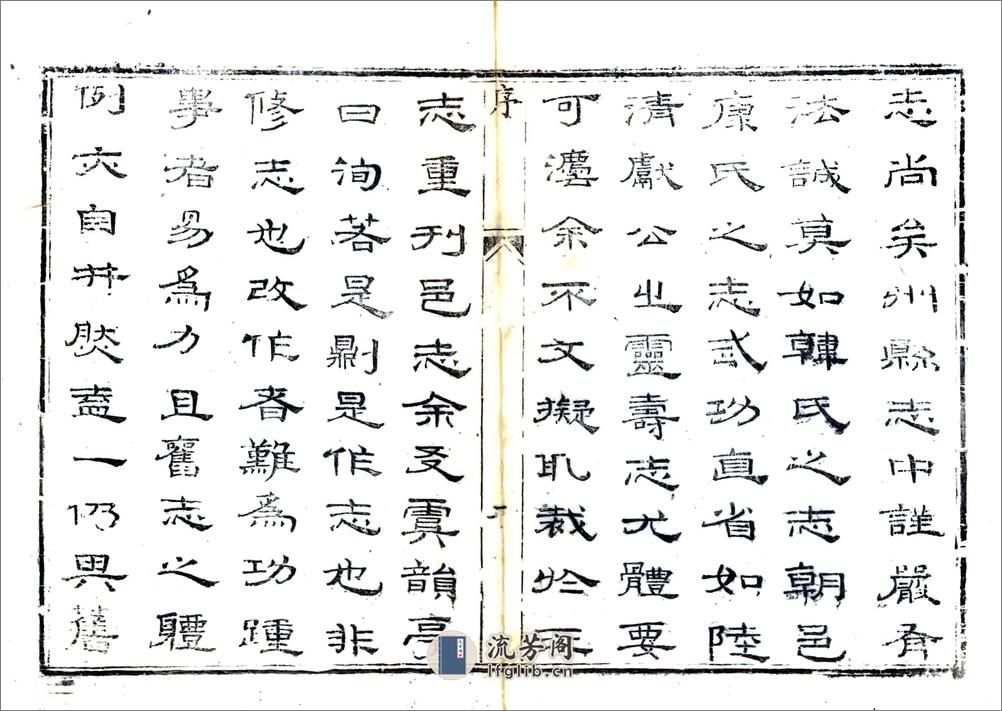 志尚矣州縣志中謹嚴有
法誠莫如韓氏之志朝邑
康氏之志武功直省如陸
清獻公之靈壽志尤體要
可灋余不文擬取裁於
序
志重刊邑志余友虞韻亭
曰洵若是𠟭是作志也非
修志也改作者難爲功踵
事者易爲力且舊志之體
例亦自井然盍一仍其舊
流芳阁
lfglib.cn